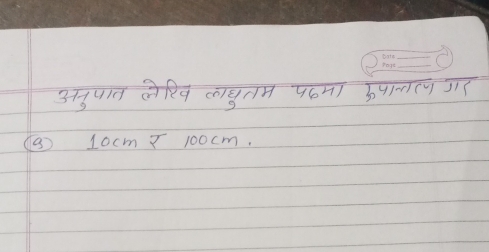 Date
Page
अनुपात लेखि लघुतम पदमा रुपान्तरण गर
(a) 10cm र 100cm.